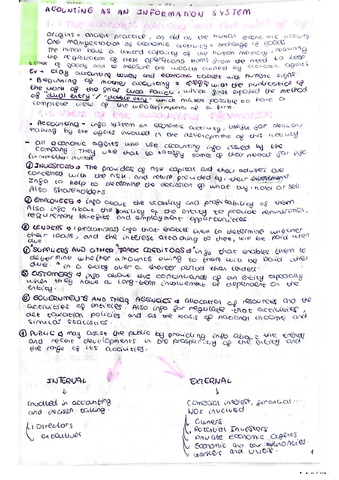 ACOUNTING AS AN INFORMATION SYSTEM
Origins = ancient practice, as old as the human economic activity
One manifestation of economic activity = exchange of goods
The human have a limited capacity of the human memory, requiring
the registration of these operations born from the need to keep
of goods and to measure the wealth owned by economic agents
Ex = clay accounting tablets and economic tablet with numeric signs
Beginning of modern accounting = with the publication of
the work of the friar Luca Pacioli, which first exposed the method
of "dual entry" / double entry which makes possible to have a
complete view of the of a firm
- Accounting = info system in economic activity, useful for decision
making by the agents involved in the development of this activity
- all economic agents who use accounting info issued by the
company. They use that to satisfy some of their needs for info
① INVESTORS = The providers of risk capital and their advisers are
concerned with the risk and return provided by their investment
Info to help to determine the decision of what buy, hold or sell.
Also shareholders.
② EMPLOYEES = info about the stability and profitability of them
Also info about the ability of the entity to provide remuneration,
requirement benefits and employment opportunities
③ LENDERS = info that enables them to determine whether
their loans, and the interest attaching to them, will be paid when
due.
④ SUPPLIERS AND OTHER TRADE CREDITORS = info that enables them to
determine whether amounts owing to them will be paid when
due. in a entity over a shorter period than lenders
⑤ CUSTOMERS = info about the continuance of an entity especially
when they have a long-term involvement or dependent on the
entity.
⑥ GOVERNMENTS AND THEIR AGENCIES = allocation of resources and the
activities of entities. Also info for regulate that activities,
set taxation policies and as the basis of national income and
similar statistics.
⑦ PUBLIC = may assist the public by providing info about the trends
and recent developments in the prosperity of the entity and
the range of its activities.
INTERNAL
EXTERNAL
Involved in accounting
and decision taking.
Directors
Executives
Commercial interest, financial...
Not involved
Owners
Potential Investors
Private economic agents
Economic and tax authorities
Workers and unions.
1